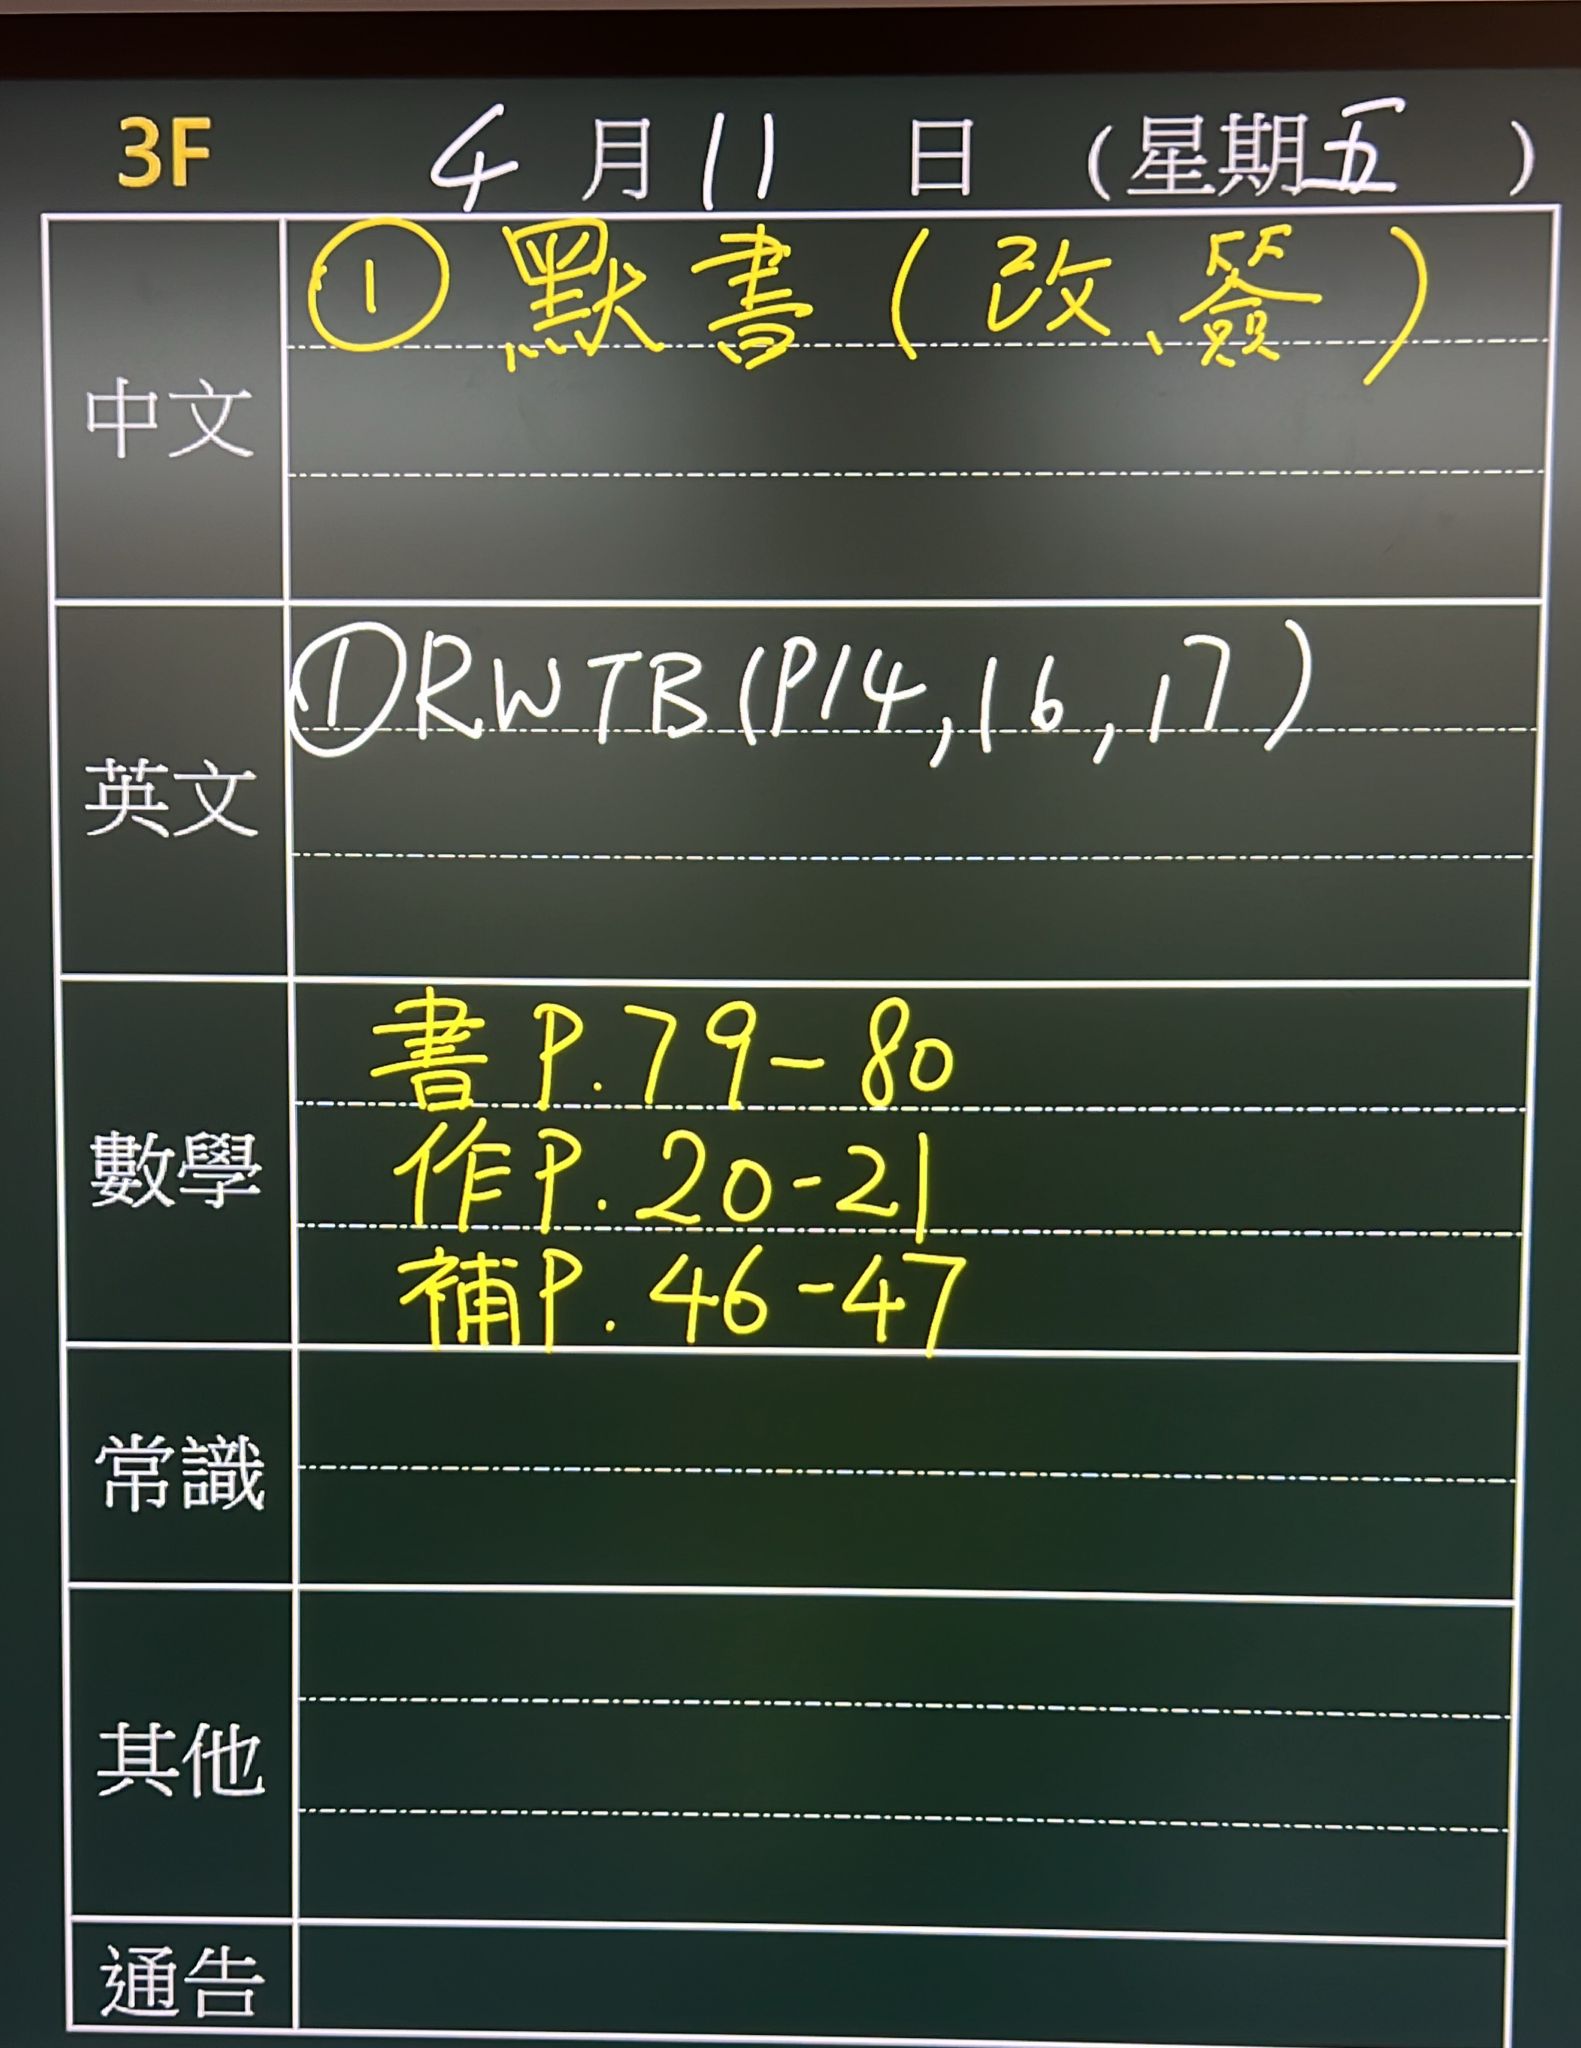 3F 4月11日 (星期五)
中文
① 默書(改、簽)
英文
① RWTB(P14,16,17)
數學
書P.79-80
作P.20-21
補P.46-47
常識
其他
通告